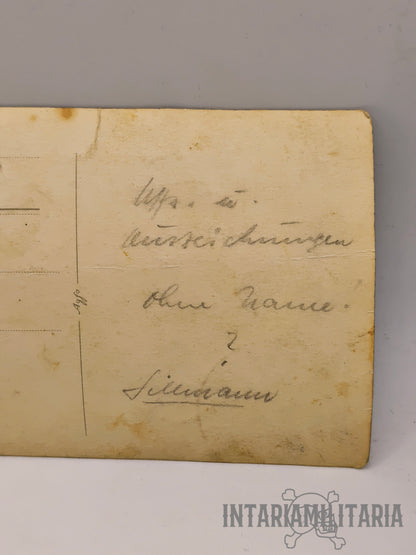 Uffz. u.
Auszeichnungen
ohne Name!
?
Sillmann
INTARIAMILITARIA